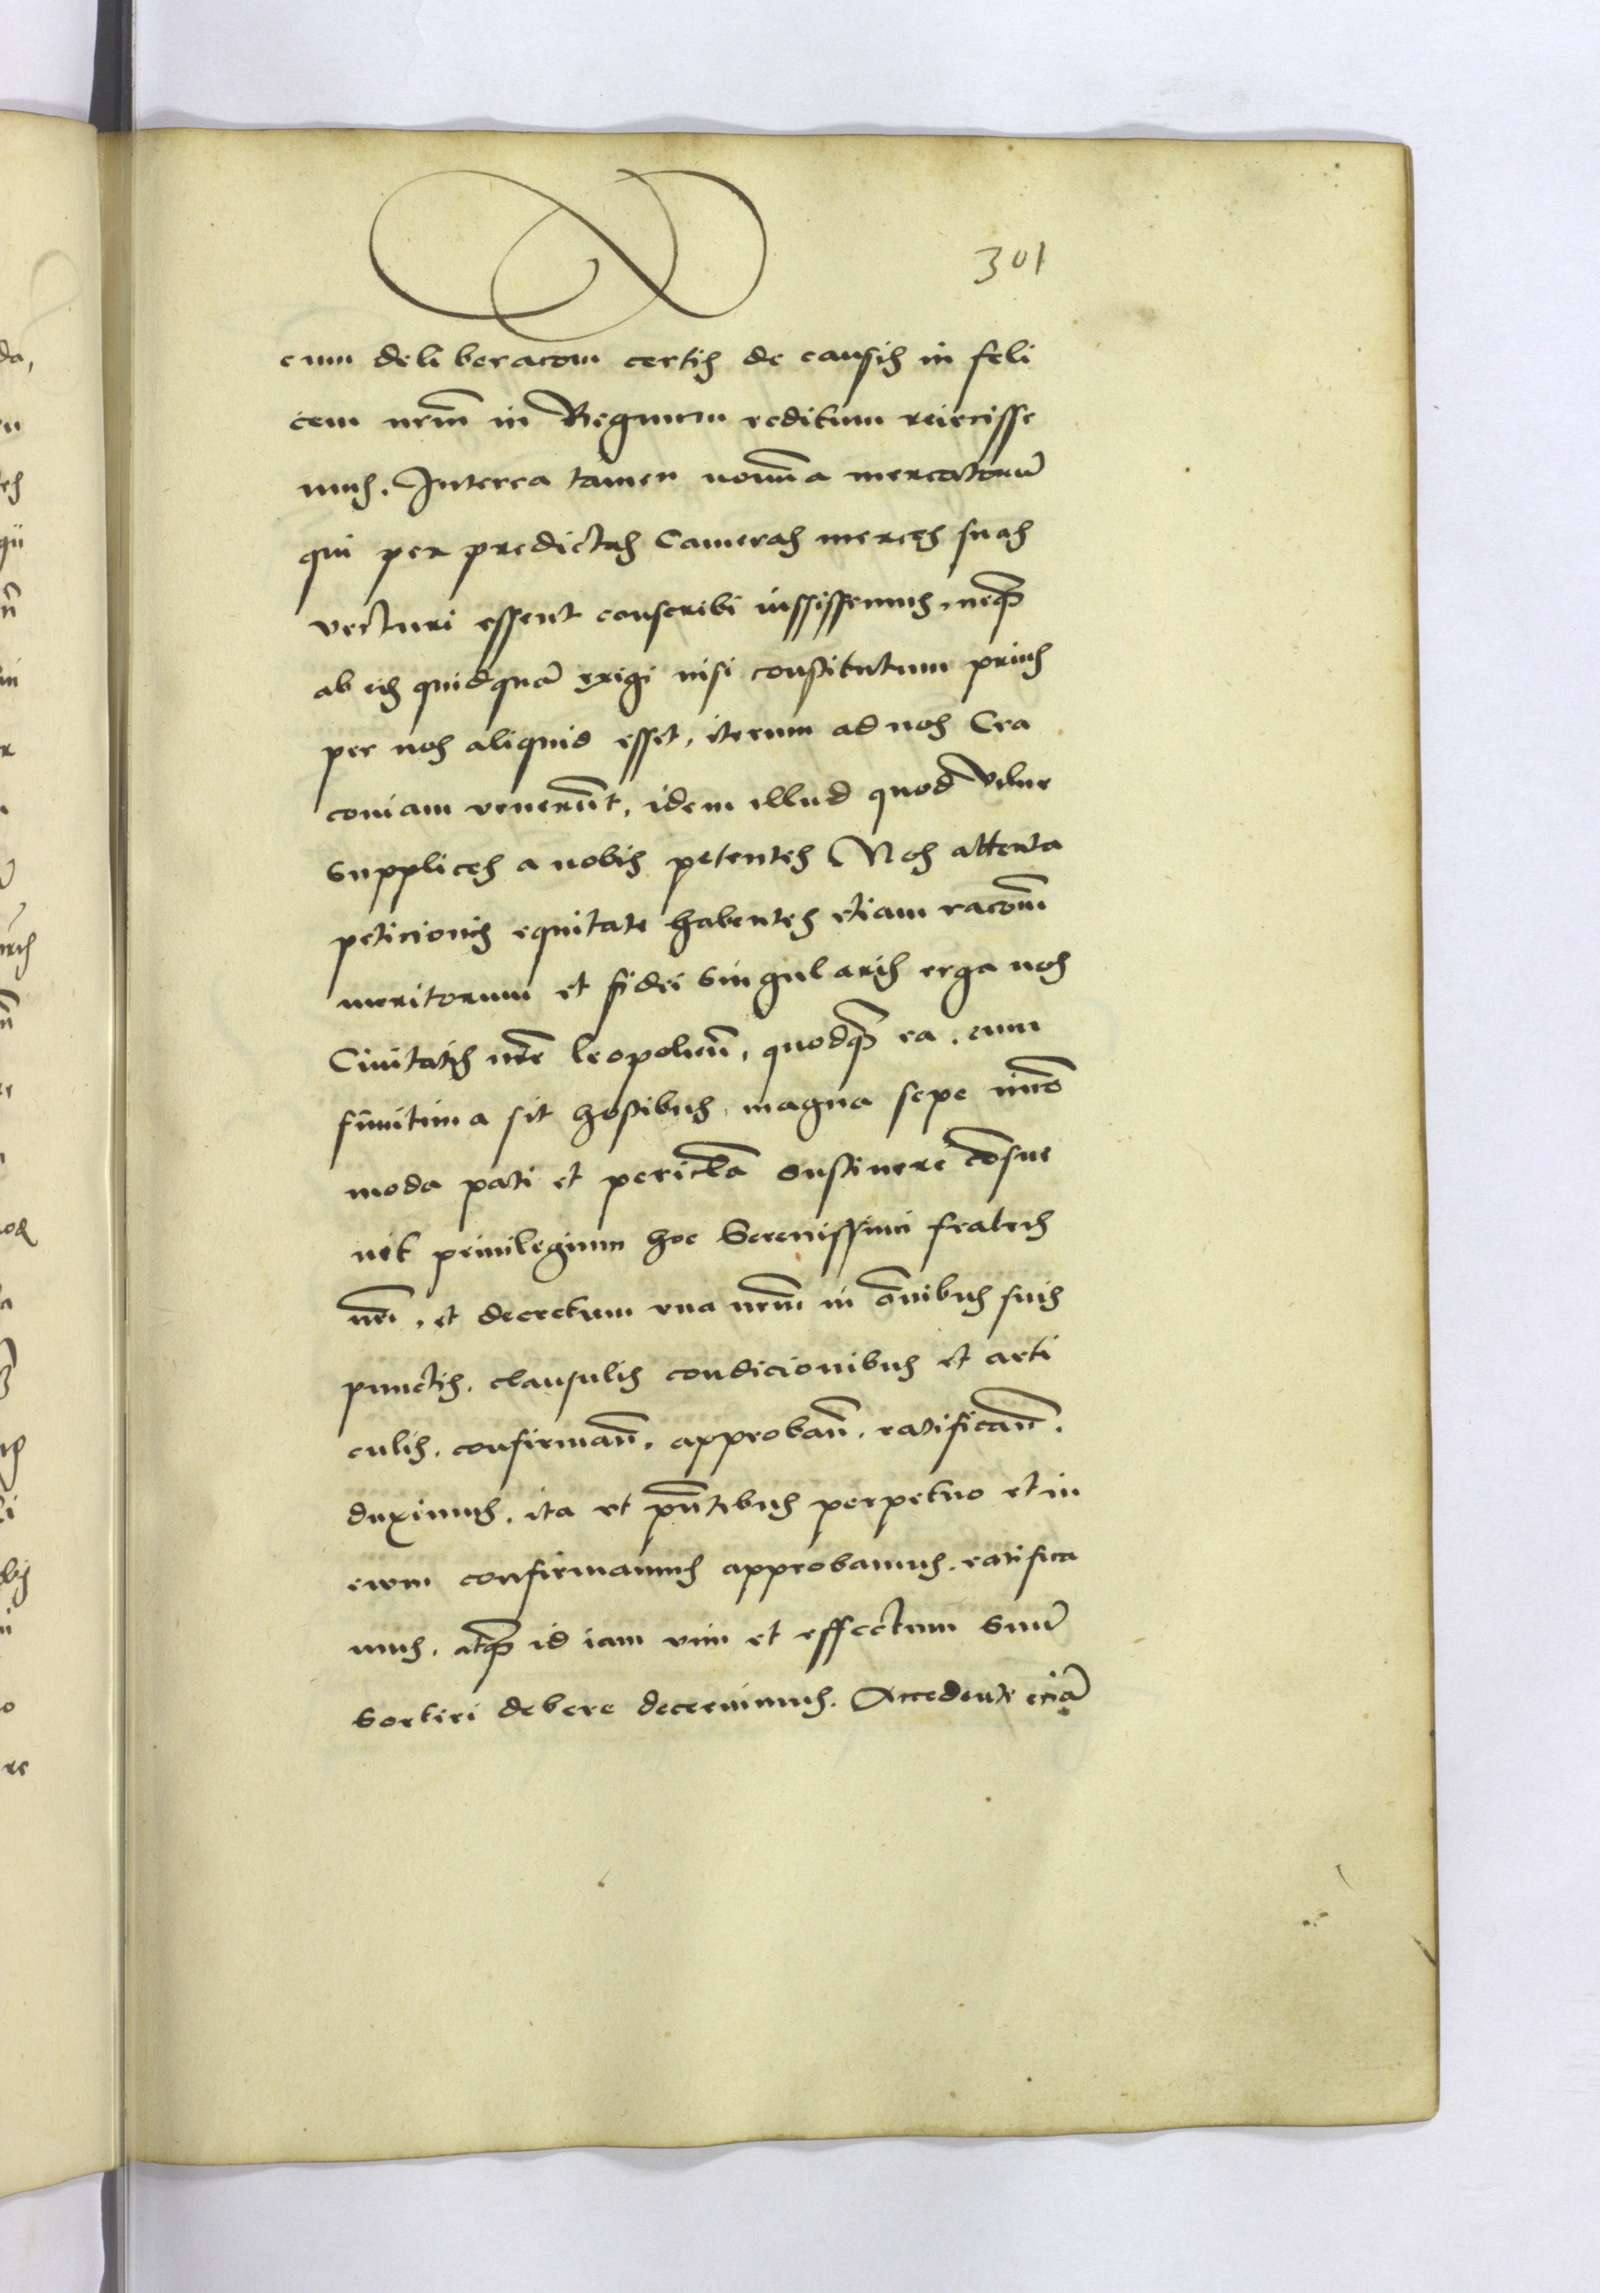 301
cum deliberacom certis de causis in feli
cem nrm̄ in Regnum reditum reiecisse
mus. Interea tamen nomina mercatorū
qui per predictas Cameras merces suas
vecturi essent conscribi iussissemus, neqꝫ
ab eis quidquā exigi nisi constitutum prius
per nos aliquid esset, iterum ad nos Cra
coniam venerūt, idem illud quod Vilne
supplices a nobis petentes Nos attenta
peticionis equitate habentes etiam racom̄
meritorum et fidei singularis erga nos
Ciuitatis nr̄e leopolien̄, quodqꝫ ea, cum
finitima sit hostibus, magna sepe incō
moda pati et pericl̄a sustinere cōsue
uit priuilegium hoc Serenissimi fratris
nr̄i, et decretum vna nrm̄ in om̄ibus suis
punctis, clausulis condicionibus et arti
culis, confirman̄, approban̄, ratifican̄,
duximus, ita vt pn̄tibus perpetuo et in
euum confirmamus approbamus, ratifica
mus, atqꝫ id iam vim et effectum suum̄
sortiri debere decernimus. Accedente eciā